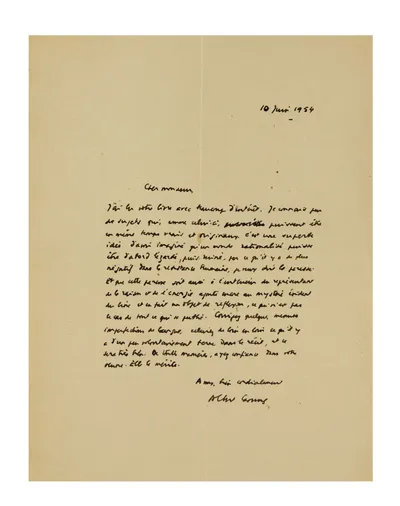 10 Juin 1954
Cher monsieur
J'ai lu votre livre avec beaucoup d'intérêt. Je connais peu
de sujets qui, comme celui-ci, puissent être
en même temps vrais et originaux. C'est une superbe
idée d'avoir imaginé qu'un monde rationalisé puisse
être d'abord par ce qu'il y a de plus
négatif dans la résistance humaine, je veux dire la paresse.
Et que cette paresse soit aussi
de la raison et de l'énergie ajoute encore au mystère évident
du livre et en fait un objet de réflexion, ce qui n'est pas
le cas de tout ce qui se publie. Corrigez quelques menues
imperfections de langage, enlevez de loin en loin ce qu'il y
a d'un peu volontairement terne dans le récit, et ce
sera très bien. De toute manière, ayez confiance dans votre
oeuvre. Elle le mérite.
A vous, très cordialement
Albert Camus